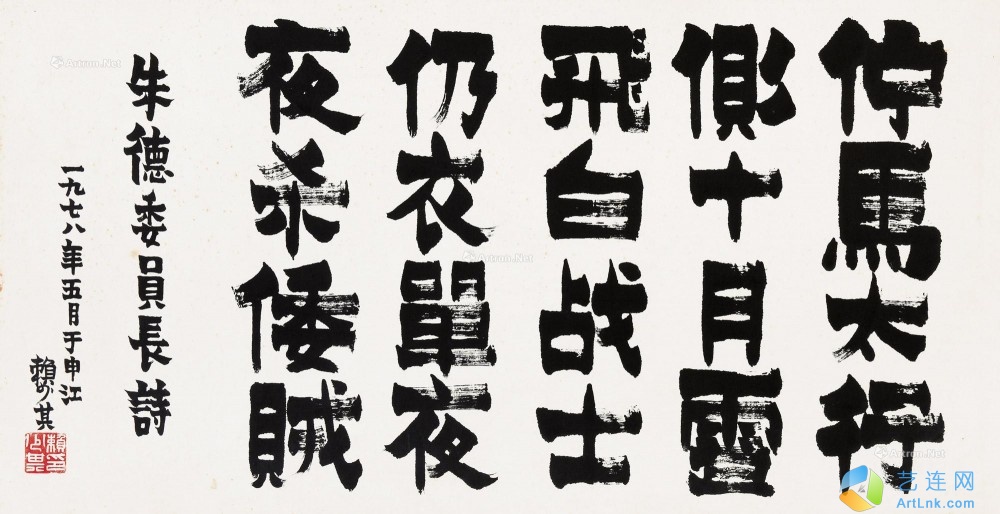 佇馬太行
側十月雪
飛白战士
仍衣單夜
夜杀倭賊
朱德委員長詩
一九七八年五月于申江
賴少其
Artron.Net
Artron.Net
Artron.Net
Artron.Net
艺连网
ArtLnk.com